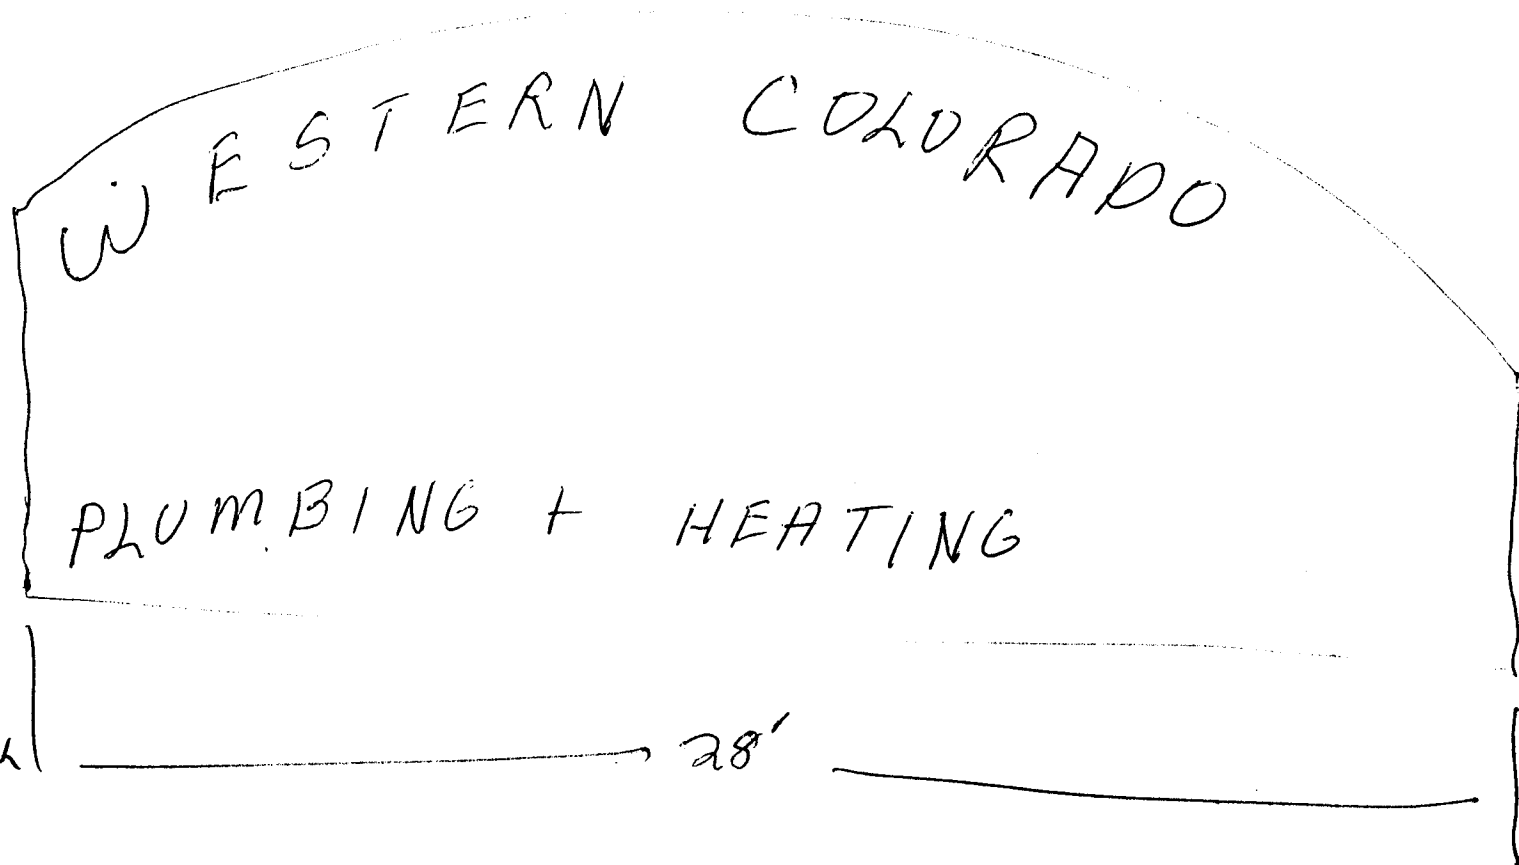 WESTERN COLORADO
PLUMBING + HEATING
28'